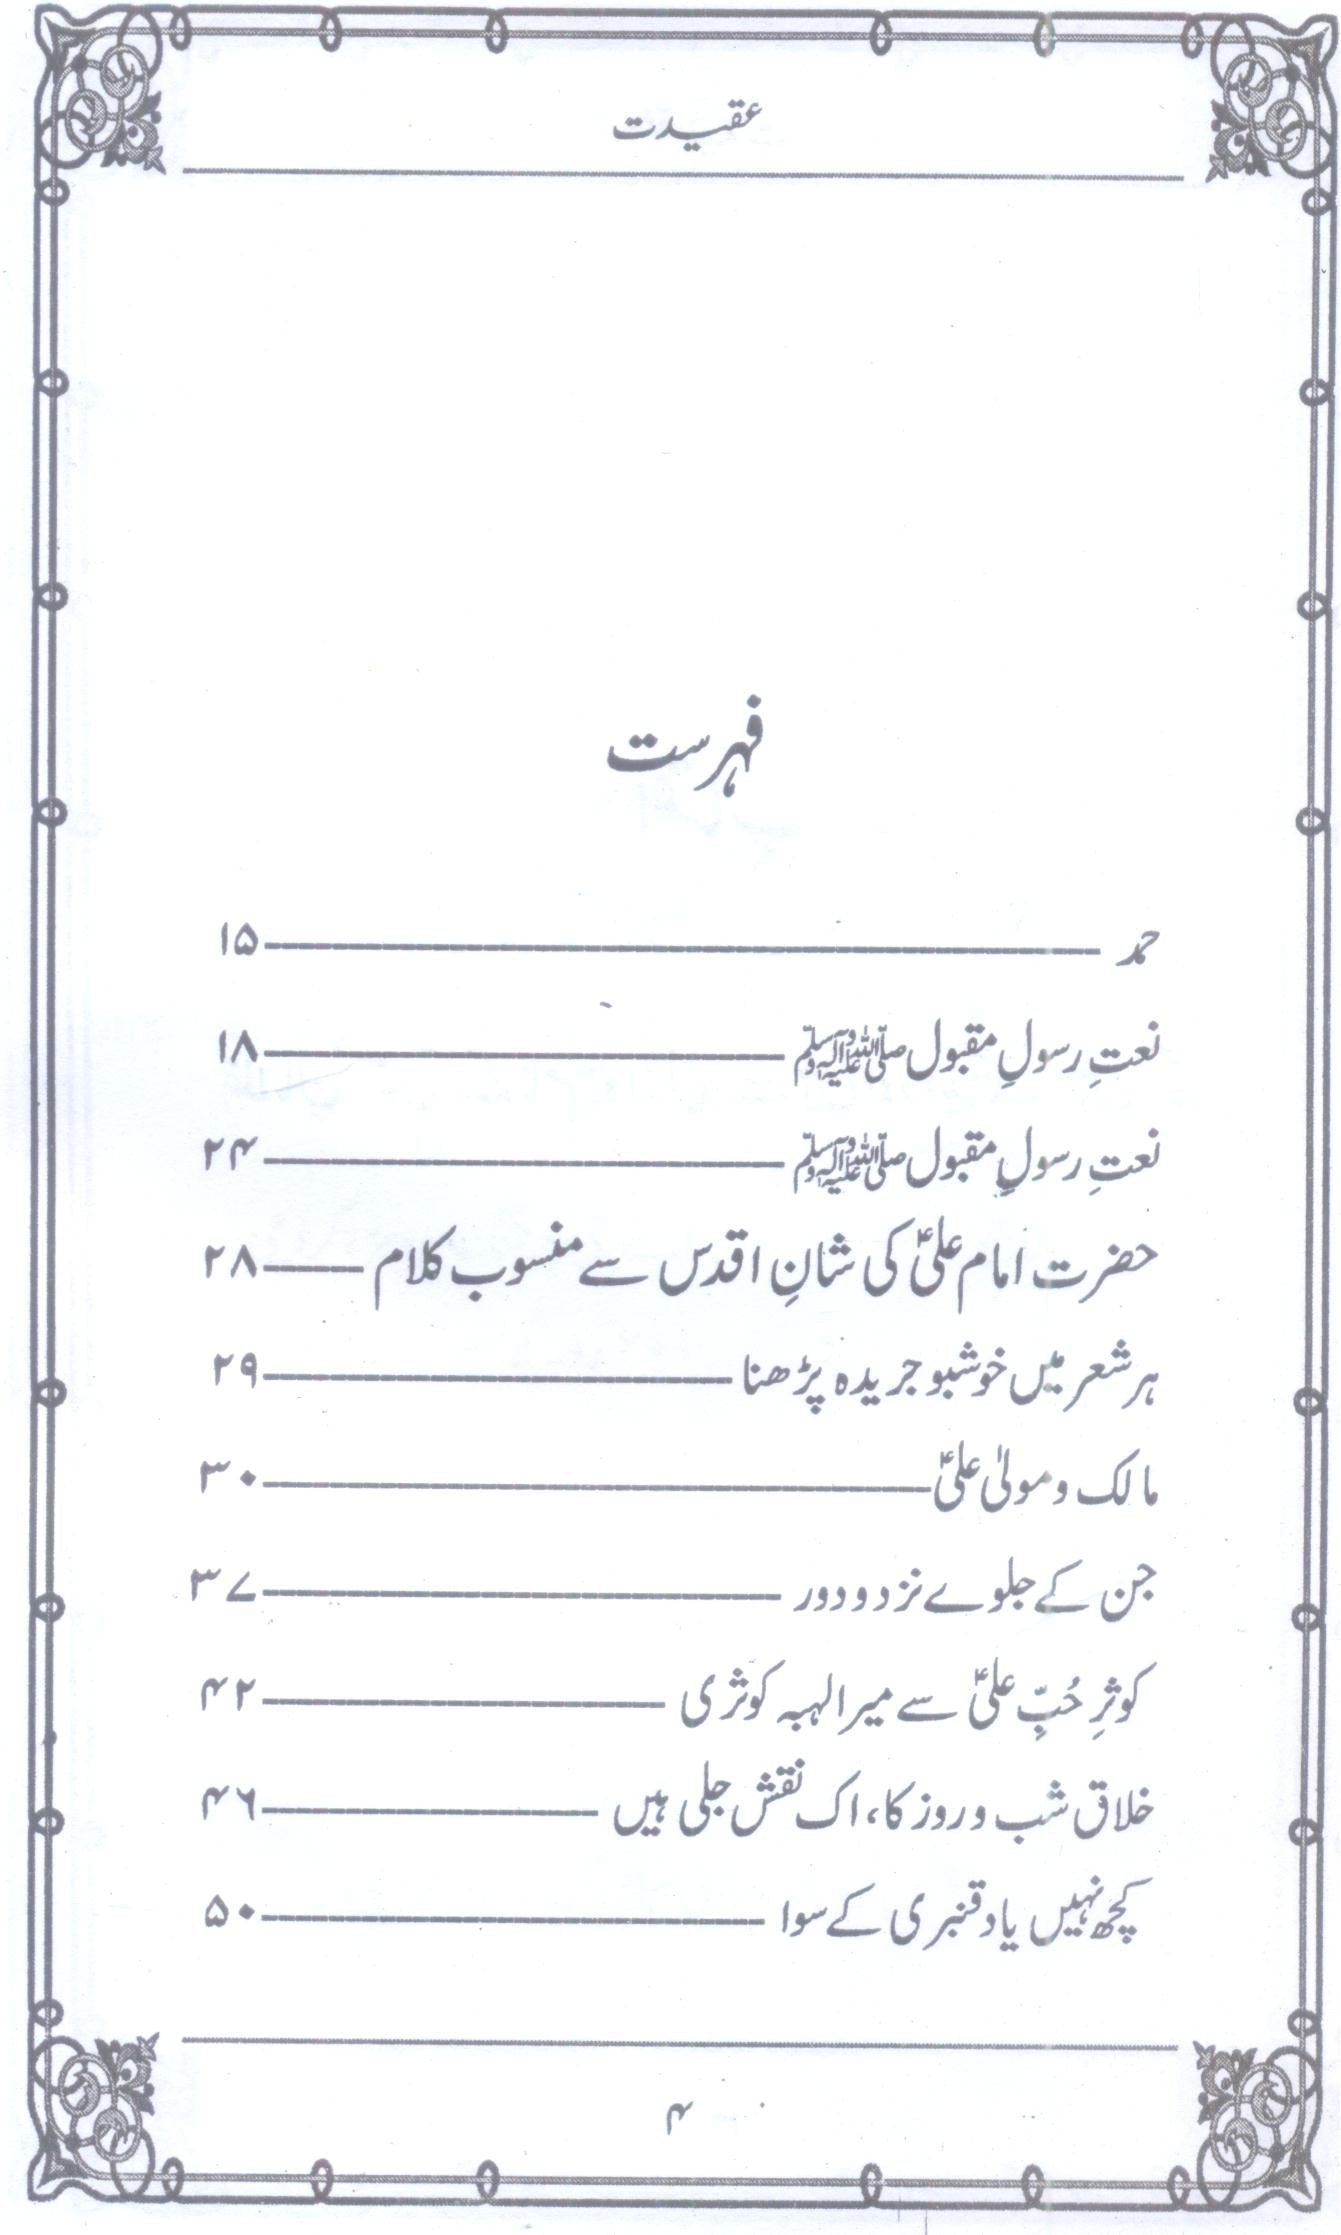 عقیدت
فہرست
حمد ۱۵
نعتِ رسولِ مقبول ﷺ ۱۸
نعتِ رسولِ مقبول ﷺ ۲۴
حضرت امام علیؑ کی شانِ اقدس سے منسوب کلام ۲۸
ہر شعر میں خوشبو جریدہ پڑھنا ۲۹
مالک و مولیٰ علیؑ ۳۰
جن کے جلوے نزد و دور ۳۷
کوثرِ حُبِّ علیؑ سے میرا لہبہ کوثری ۴۲
خلاق شب و روز کا، اک نقش جلی ہیں ۴۶
کچھ نہیں یاد قنبری کے سوا ۵۰
۴